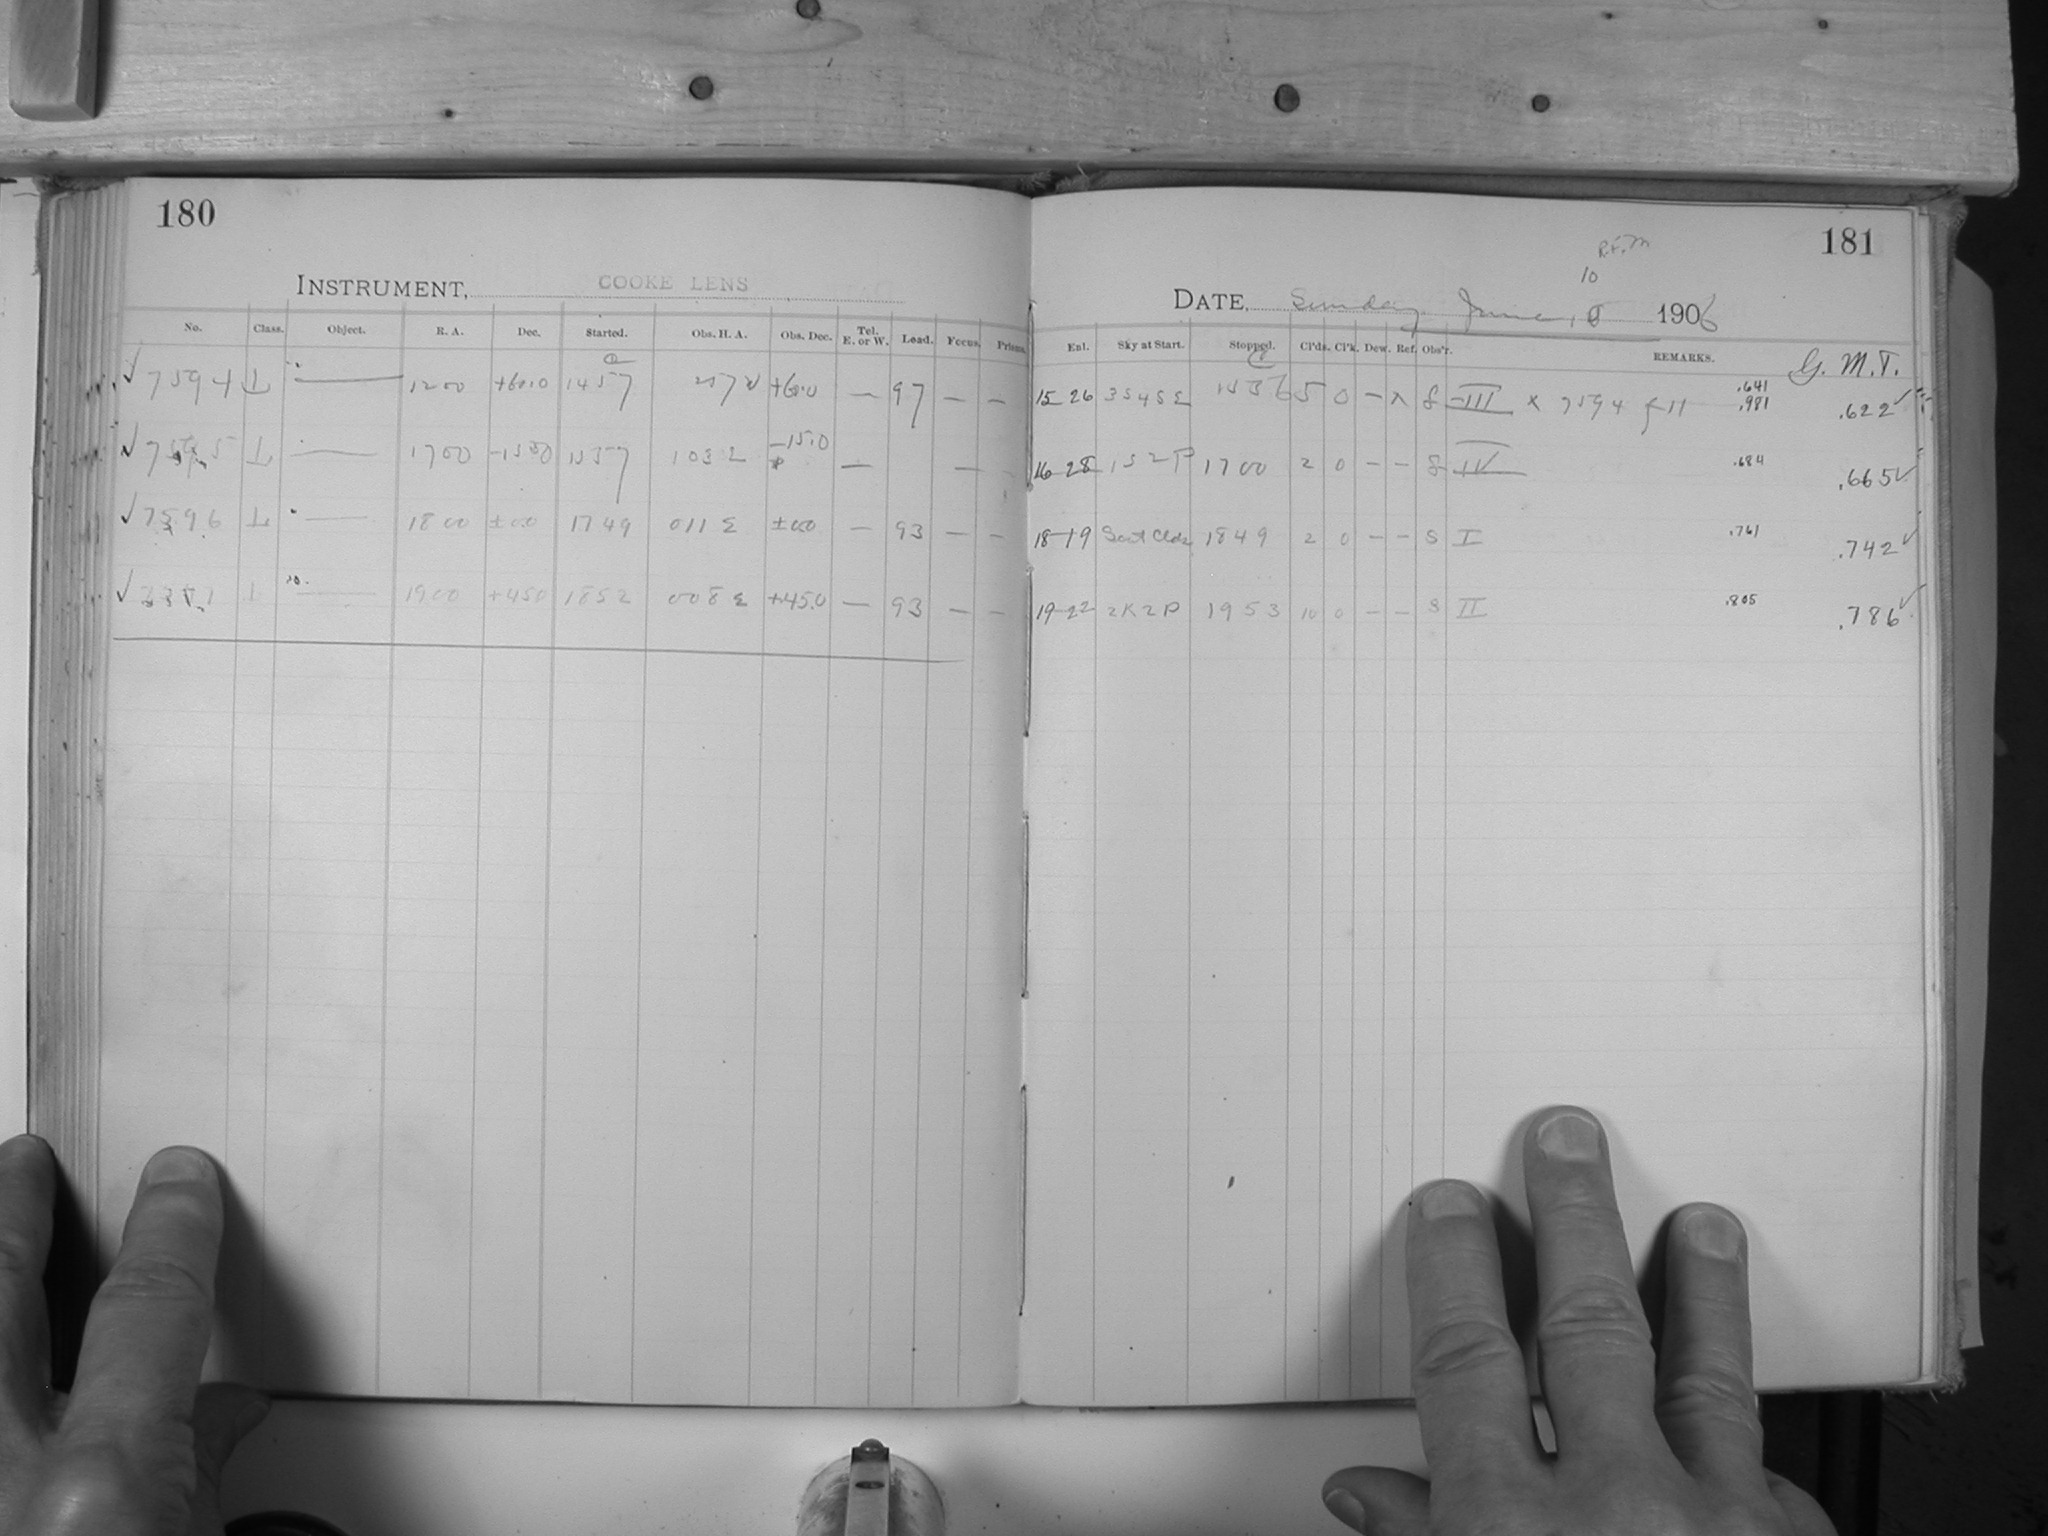 180
INSTRUMENT, COOKE LENS
No. Class. Object. R. A. Dec. Started. Obs. H. A. Obs. Dec. Tel. E. or W. Load. Focus. Prisms.
✓ 7594 — 1200 +60.0 1457 +60.0 — 97 — —
✓ — 1700 1537 103 — —
✓ 7596 — 1800 ±0.0 1749 011 E ±0.0 — 93 — —
✓ — 1900 +45.0 1852 008 E +45.0 — 93 — —
181
10
DATE, Sunday June 1906
Exl. Sky at Start. Stopped. Cl'ds. Cl'k. Dew. Ref. Obs'r. REMARKS. G. M. T.
15 26 1536 5 0 — III × 7594 .641 .981 .622 ✓
16-28 1700 2 0 — — IV .684 .665 ✓
18-19 1849 2 0 — — S I .761 .742 ✓
19-22 2K2P 1953 10 0 — — S II .805 .786 ✓